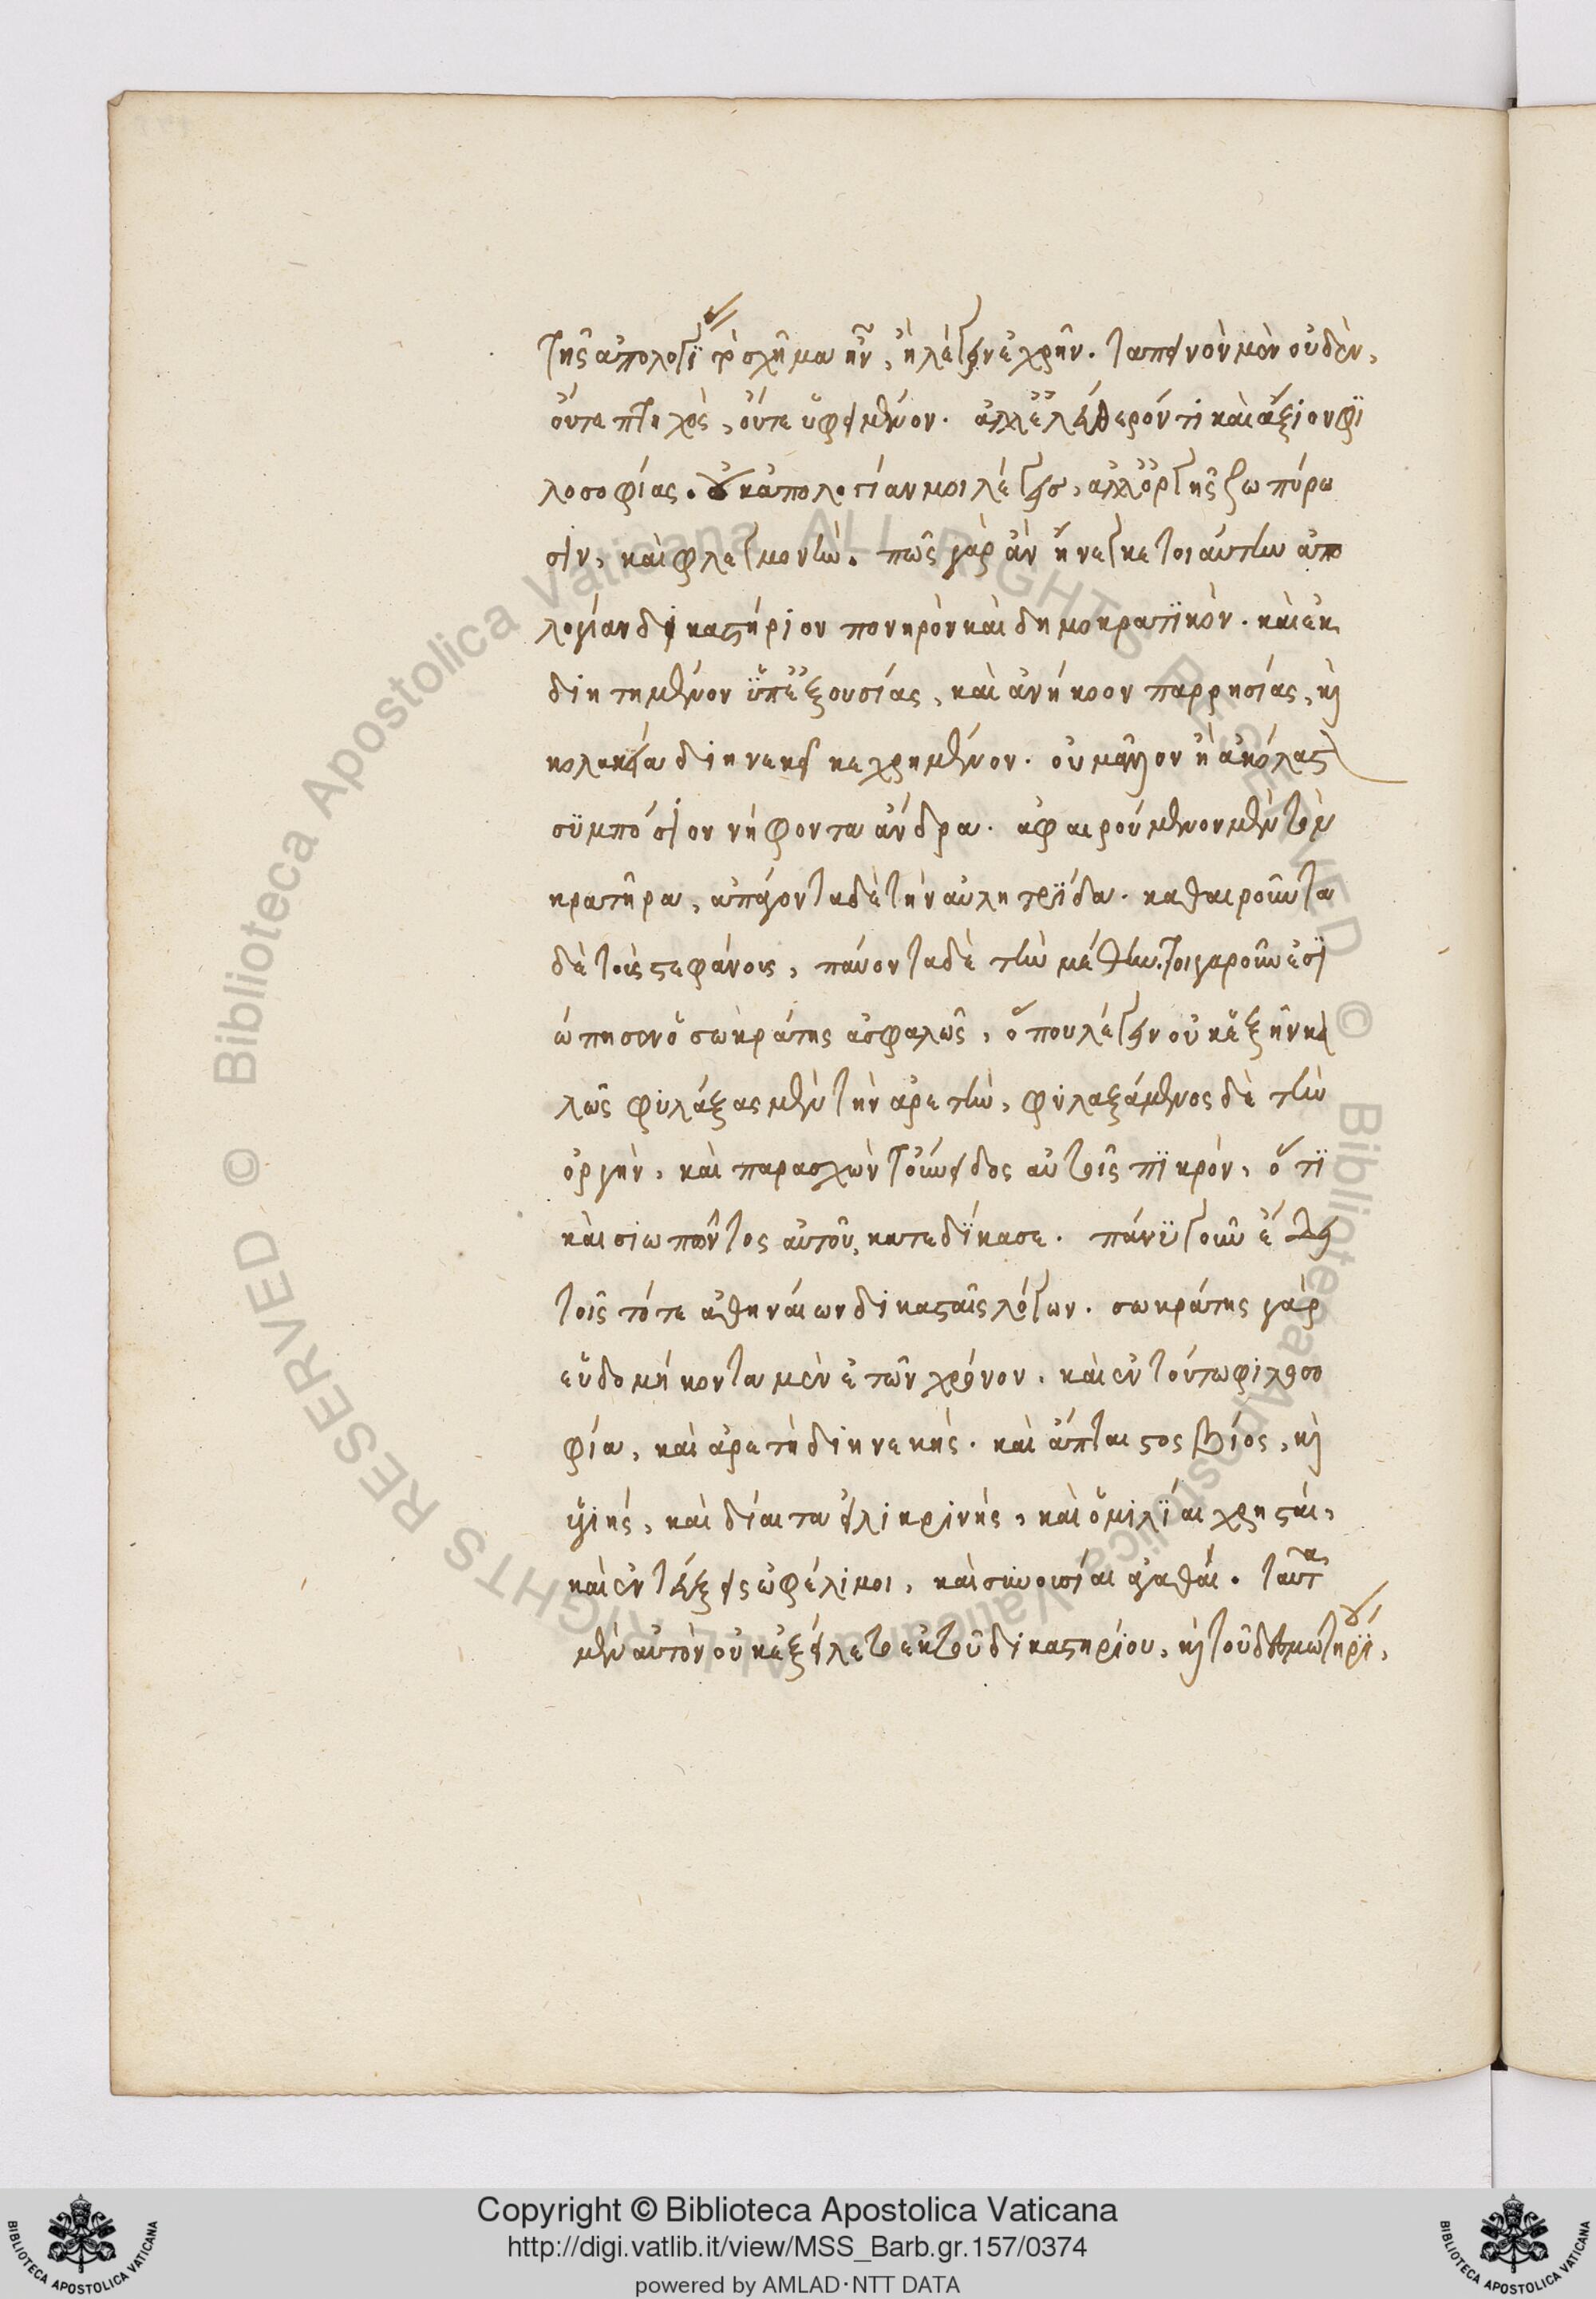 τῆς ἀπολογίας τὸ σχῆμα ἦν, ἢ λέγειν ἐχρῆν. ταπεινὸν μὲν οὐδὲν,
οὔτε πτωχὸς, οὔτε ὑφειμένον. ἀλλ' ἐλεύθερόν τι καὶ ἄξιον φι
λοσοφίας. οὐκ ἀπολογίαν μοι λέγεις, ἀλλ' ὀργῆς ζωπύρω
σιν, καὶ φλεγμονὴν. πῶς γὰρ ἂν ἤνεγκε τοιαύτην ἀπο
λογίαν δικαστήριον πονηρὸν καὶ δημοκρατικὸν. καὶ ἐκ
διῃτημένον ὑπ' ἐξουσίας, καὶ ἀνήκοον παρρησίας, καὶ
κολακεία διηνεκεῖ κεχρημένον. οὐ μᾶλλον ἢ ἀκόλαστον
συμπόσιον νήφοντα ἄνδρα. ἀφαιρούμενον μὲν τὸν
κρατῆρα, ἀπάγοντα δὲ τὴν αὐλητρίδα. καθαιροῦντα
δὲ τοὺς στεφάνους, παύοντα δὲ τὴν μέθην. τοιγαροῦν ἐσι
ώπησεν ὁ σωκράτης ἀσφαλῶς, ὅπου λέγειν οὐκ ἐξῆν κα
λῶς φυλάξας μὲν τὴν ἀρετὴν, φυλαξάμενος δὲ τὴν
ὀργὴν, καὶ παρασχὼν τοὔνειδος αὐτοῖς πικρὸν, ὅτι
καὶ σιωπῶντος αὐτοῦ, κατεδίκασε. πάνυ γοῦν ἔδει
τοῖς τότε ἀθηναίων δικασταῖς λόγων. σωκράτης γὰρ
εὑδομήκοντα μὲν ἐτῶν χρόνον. καὶ ἐν τούτω φιλοσο
φία, καὶ ἀρετὴ διηνεκής. καὶ ἄπταιστος βίος, καὶ
ὑγιής, καὶ δίαιτα εἰλικρινής, καὶ ὁμιλίαι χρησταί,
καὶ ἐντεύξεις ὠφέλιμοι, καὶ συνουσίαι ἀγαθαί. ταῦτα
μὲν αὐτὸν οὐκ ἐξείλετο ἐκ τοῦ δικαστηρίου, καὶ τοῦ δεσμωτηρίου,
Copyright © Biblioteca Apostolica Vaticana
http://digi.vatlib.it/view/MSS_Barb.gr.157/0374
powered by AMLAD·NTT DATA
BIBLIOTECA APOSTOLICA VATICANA
BIBLIOTECA APOSTOLICA VATICANA
© Biblioteca Apostolica Vaticana ALL RIGHTS RESERVED
© Biblioteca Apostolica Vaticana ALL RIGHTS RESERVED